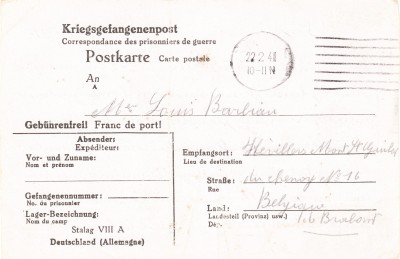 Kriegsgefangenenpost
Correspondance des prisonniers de guerre
Postkarte Carte postale
22.2.41
10-11 N
An
A
Mr Louis Barbiau
Gebührenfrei! Franc de port!
Absender:
Expéditeur:
Vor- und Zuname:
Nom et prénom
Gefangenennummer:
No. du prisonnier
Lager-Bezeichnung:
Nom du camp
Stalag VIII A
Deutschland (Allemagne)
Empfangsort: Hévillers Mont St Guibert
Lieu de destination
Straße: du No 16
Rue
Land: Belgique
Landesteil (Provinz usw.) Brabant
Dép.